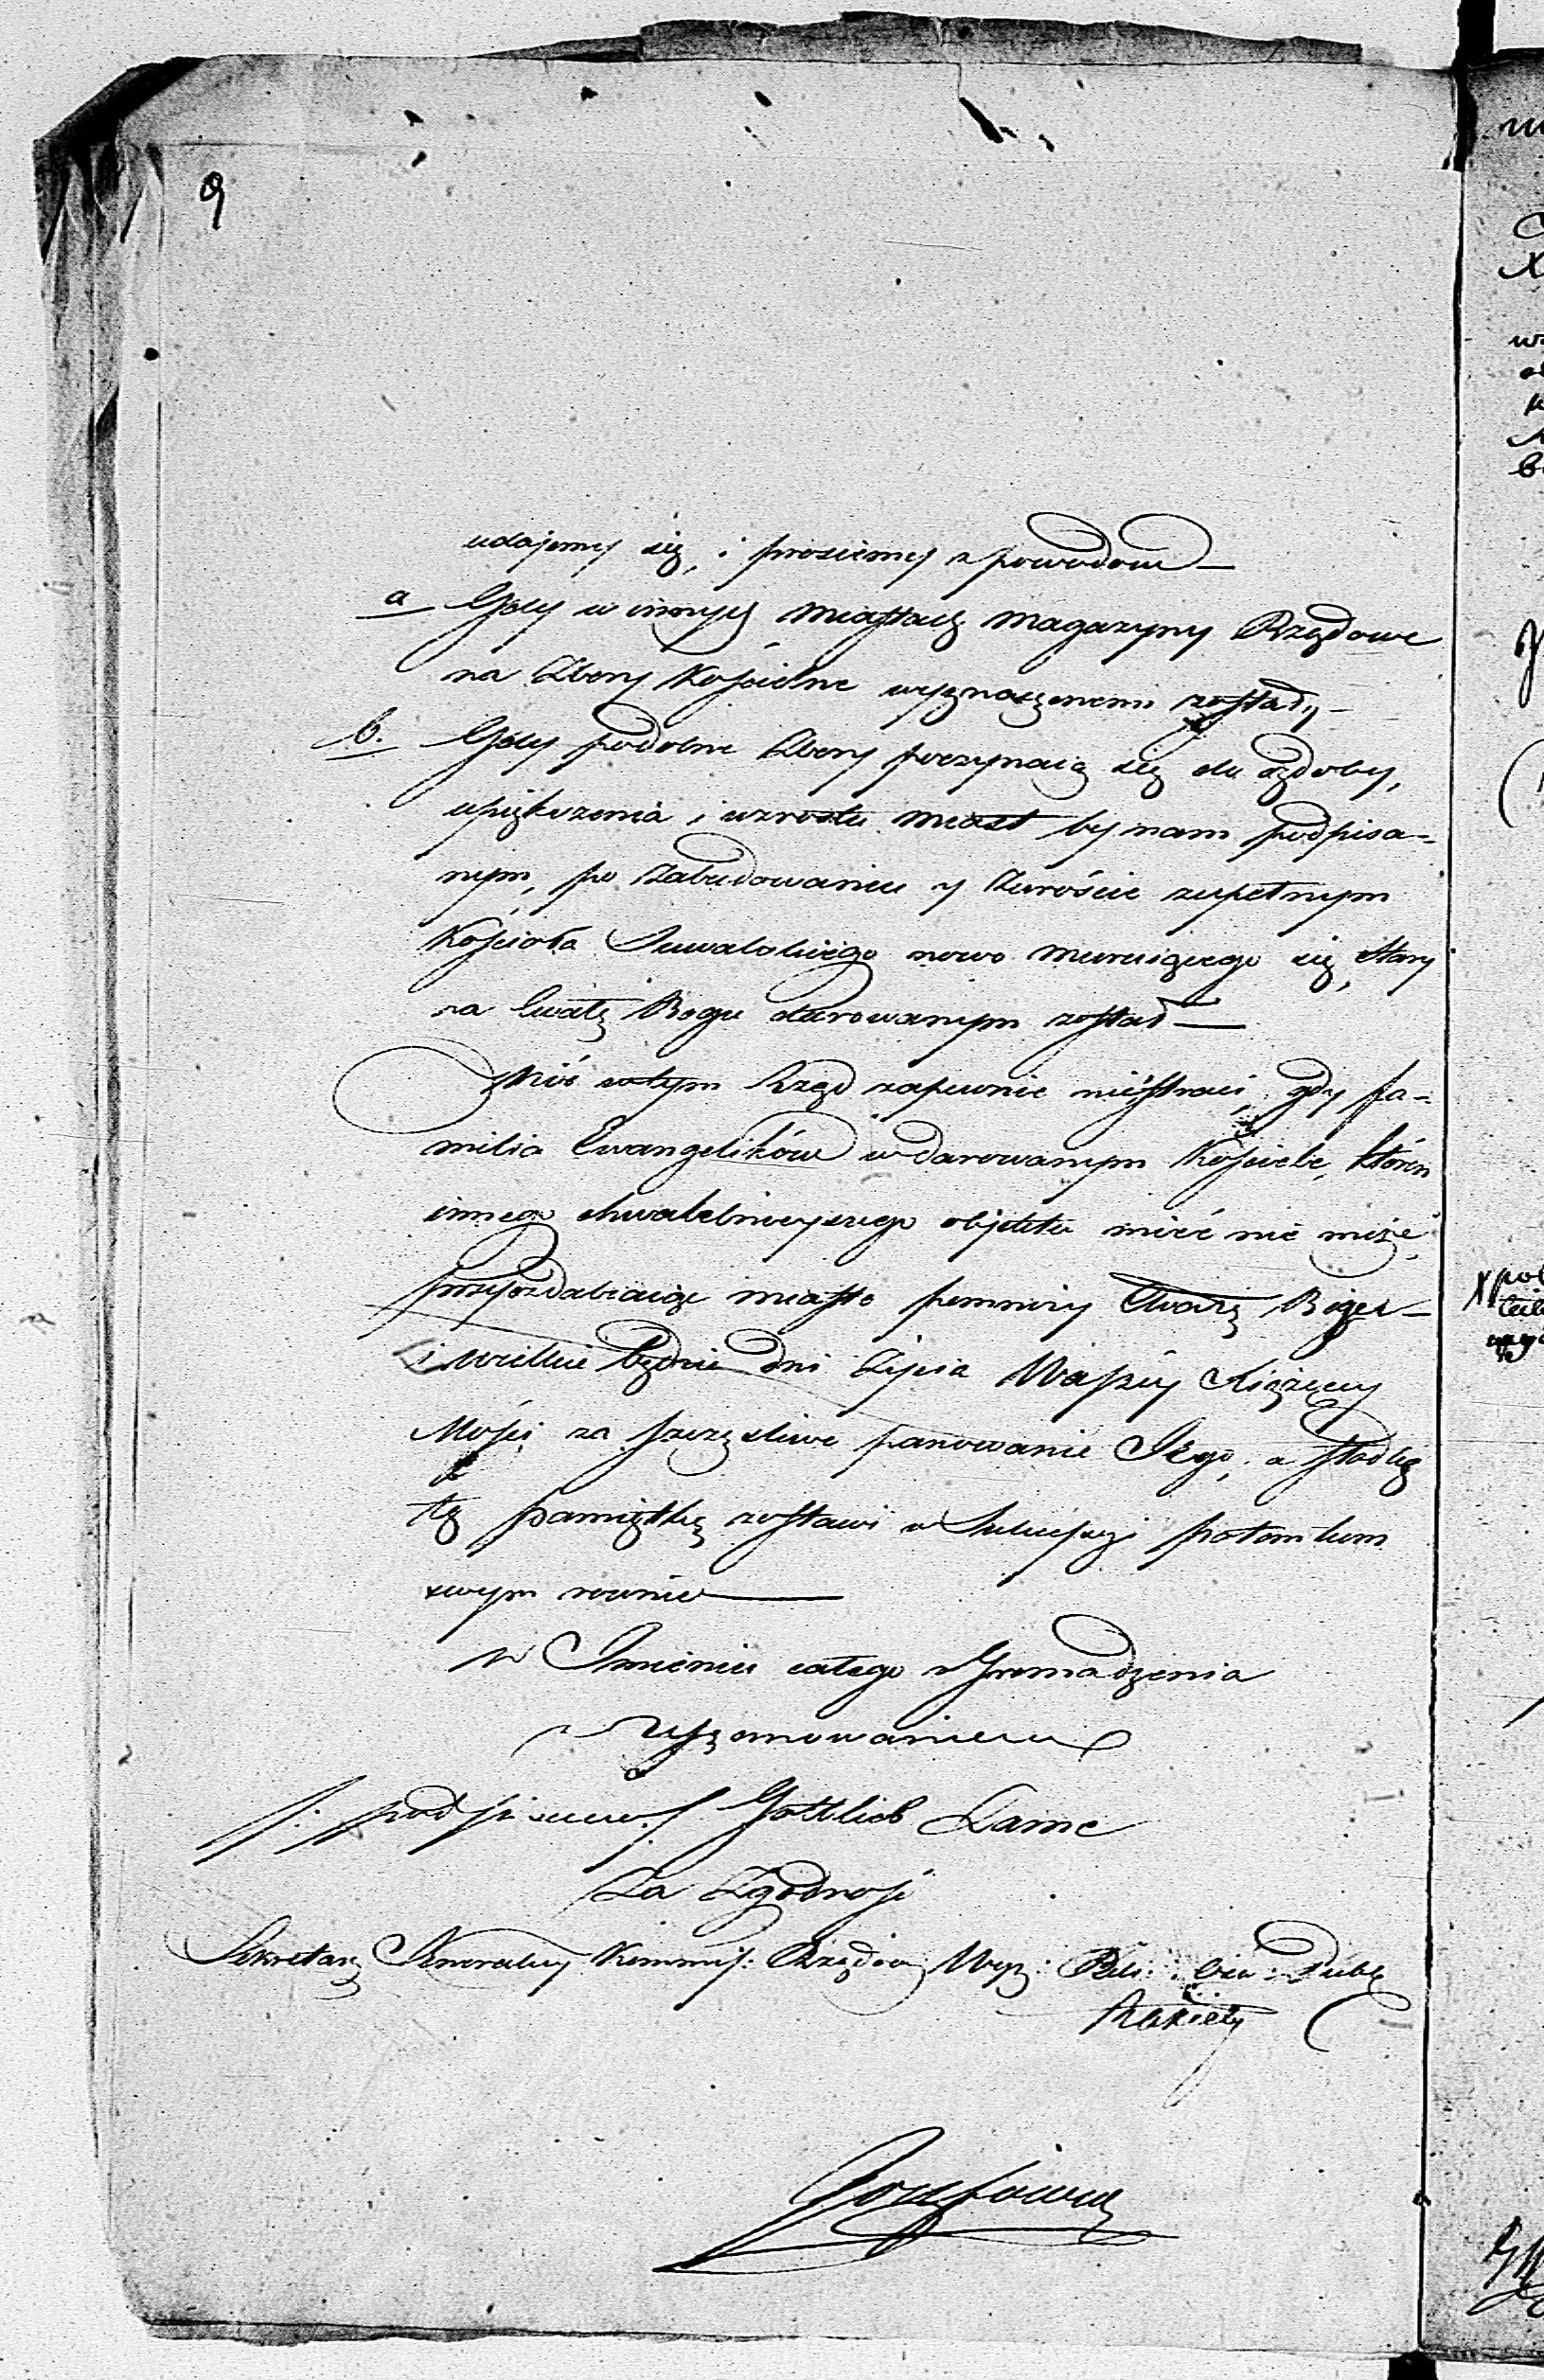 9
udajemy się, i prosiemy z powodow —
a Gdy w innych Miastach Magazyny Rządowe
na Zbory Kościelne wyznaczonemi zostały —
b. Gdy podobne Zbory poczynaią się do ozdoby,
upiększenia i wzrostu Miast by nam podpisa-
nym, po zabudowaniu y zuroście zupełnym
Kościoła Suwalskiego nowo muruiącego się, stary
na Chwałę Bogu darowanym został —
Skoś w tym Rząd zapewnie nie straci, gdy fa-
milia Ewangelików w darowanym Kościele, który
innego chwalebnieyszego objektu mieć nie może
przyozdabiaiąc miasto pomnoży Chwałę Bożą —
i wielbić będzie dni życia Waszey Xiążęcey
Mości za szczęśliwe panowanie Jego, a słodką
tę pamiątkę zostawi w Sukcessyi potomkom
swym rownie —
w Imieniu całego Zgromadzenia
podpisano Gottlieb Lame
Za Zgodność
Sekretarz Generalny Kommis: Rządowey Wyz: Reli: i Ośw: Publ: